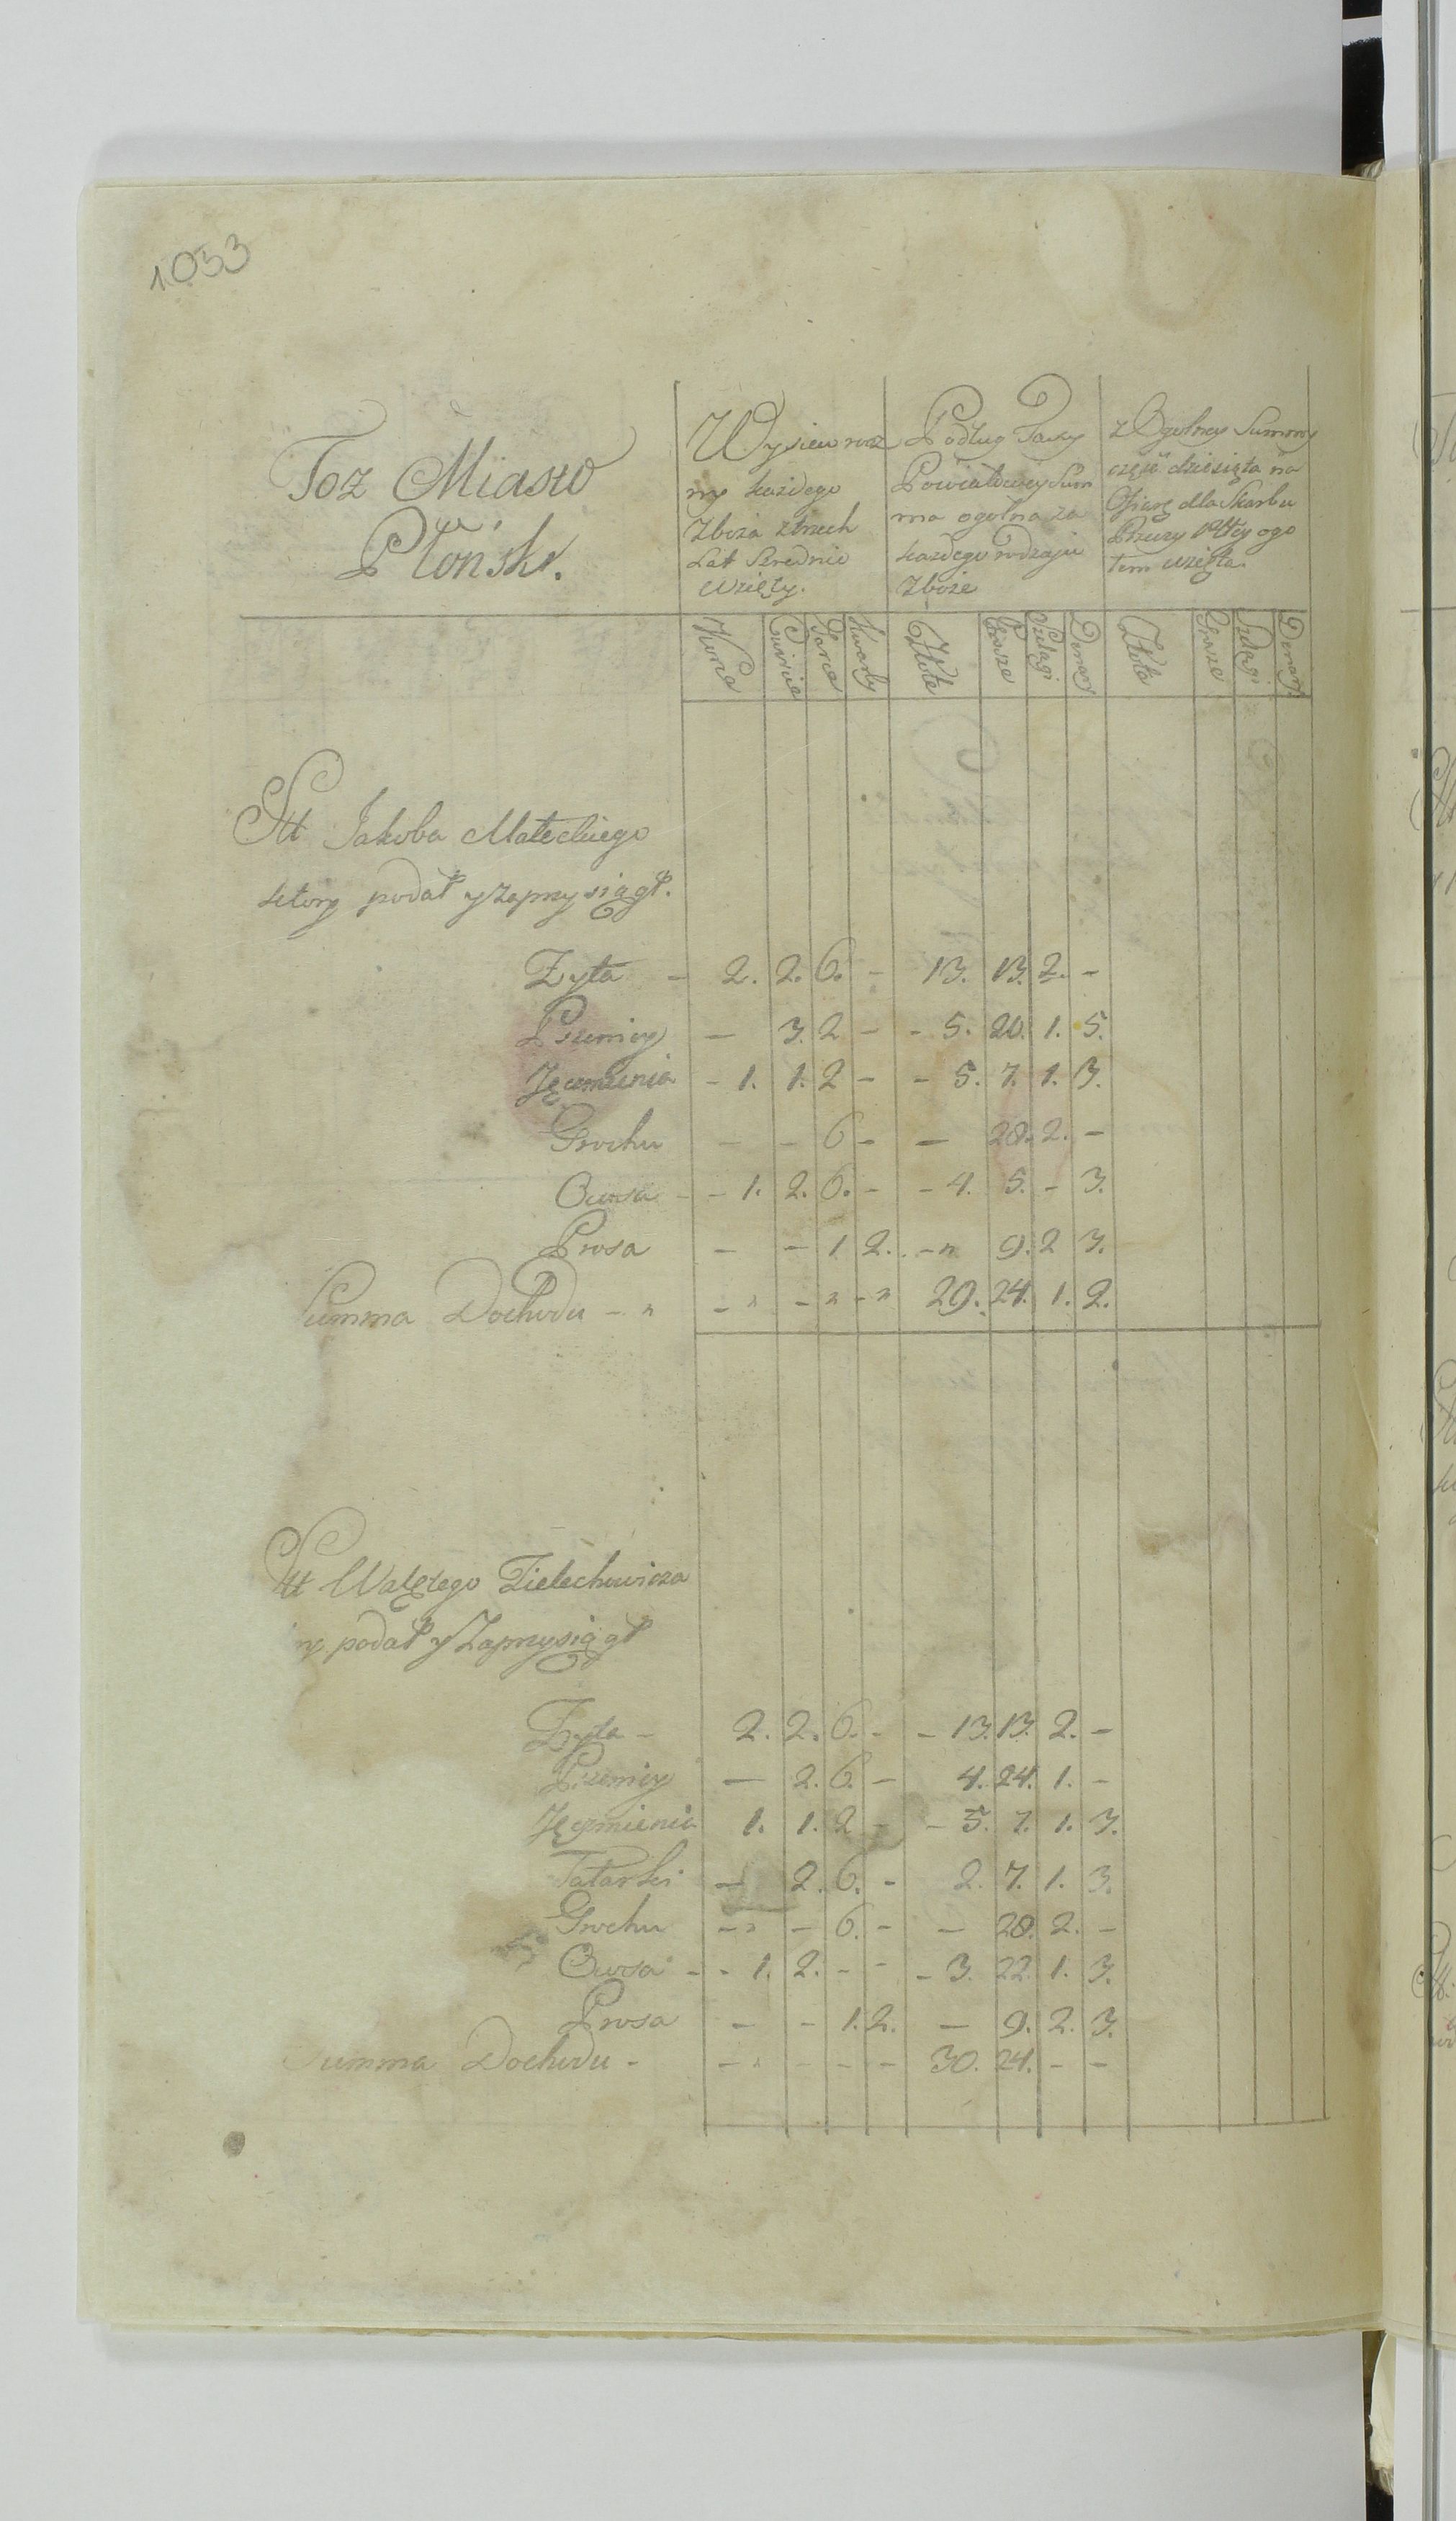 1.033
Toż Miasto
Płońsk.
Wysiew rocz
ny każdego
Zboża z trzech
Lat Srednio
wzięty.
Podług Taxy
Powiatowey Sum
ma ogolna za
każdego rodzaju
Zboże
z Ogolney Summy
część dziesiąta na
Ofiarę dla Skarbu
Rzeczy Pltey ogo
tem wzięta.
Korce Cwierci Garce Kwarty Złote Grosze Szelągi Denary Złote Grosze Szelągi Denary
Jakoba Małeckiego
ktory podał y zaprzysiągł.
Zyta - 2. 2. 6. - 13. 13. 2. -
Pszenicy - 3. 2 - - 5. 20. 1. 5.
Jęczmienia - 1. 1. 2 - - 5. 7. 1. 3.
Grochu - - 6 - - 28. 2. -
Owsa - - 1. 2. 6. - - 4. 5. - 3.
Prosa - - 1. 2. - " 9. 2 3.
Summa Dochodu - " - " - " - " 29. 24. 1. 2.
Walętego Zielechowicza
ry podał y Zaprzysiągł
Zyta - 2. 2. 6. - - 13. 13. 2. -
Pszenicy - 2. 6. - 4. 24. 1. -
Jęczmienia 1. 1. 2 - - 5. 7. 1. 3.
Tatarki - 2. 6. - 2. 7. 1. 3.
Grochu - " - 6. - - 28. 2. -
Owsa - - 1. 2. - - - 3. 22. 1. 3.
Prosa - - 1. 2. - 9. 2. 3.
umma Dochodu - - " - - - 30. 24. - -